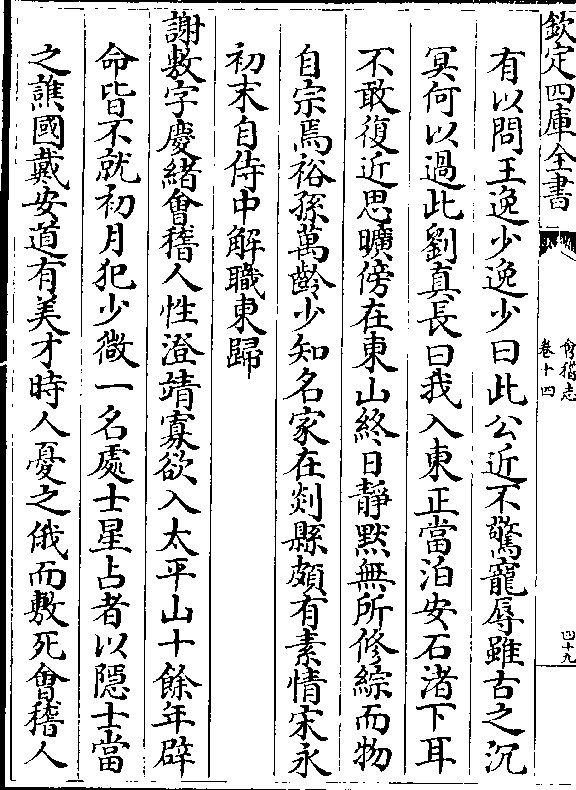 欽定四庫全書
會稽志
卷十四
四十九
有以問王逸少逸少曰此公近不驚寵辱雖古之沉
冥何以過此劉真長曰我入東正當泊安石渚下耳
不敢復近思曠傍在東山終日靜默無所修綜而物
自宗焉裕孫萬齡少知名家在剡縣頗有素情宋永
初末自侍中解職東歸
謝敷字慶緒會稽人性澄靖寡欲入太平山十餘年辟
命皆不就初月犯少微一名處士星占者以隱士當
之譙國戴安道有美才時人憂之俄而敷死會稽人